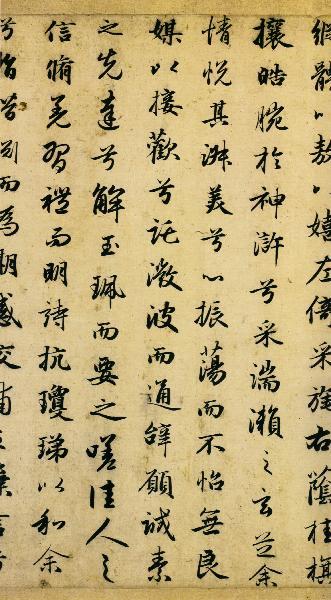 縱體以敖以嬉左倚采旄右蔭桂旗
攘皓腕於神滸兮采湍瀨之玄芝余
情悅其淑美兮心振蕩而不怡無良
媒以接歡兮託微波而通辭願誠素
之先達兮解玉珮而要之嗟佳人之
信脩羌習禮而明詩抗瓊珶以和余
兮指而為期感交甫之棄言